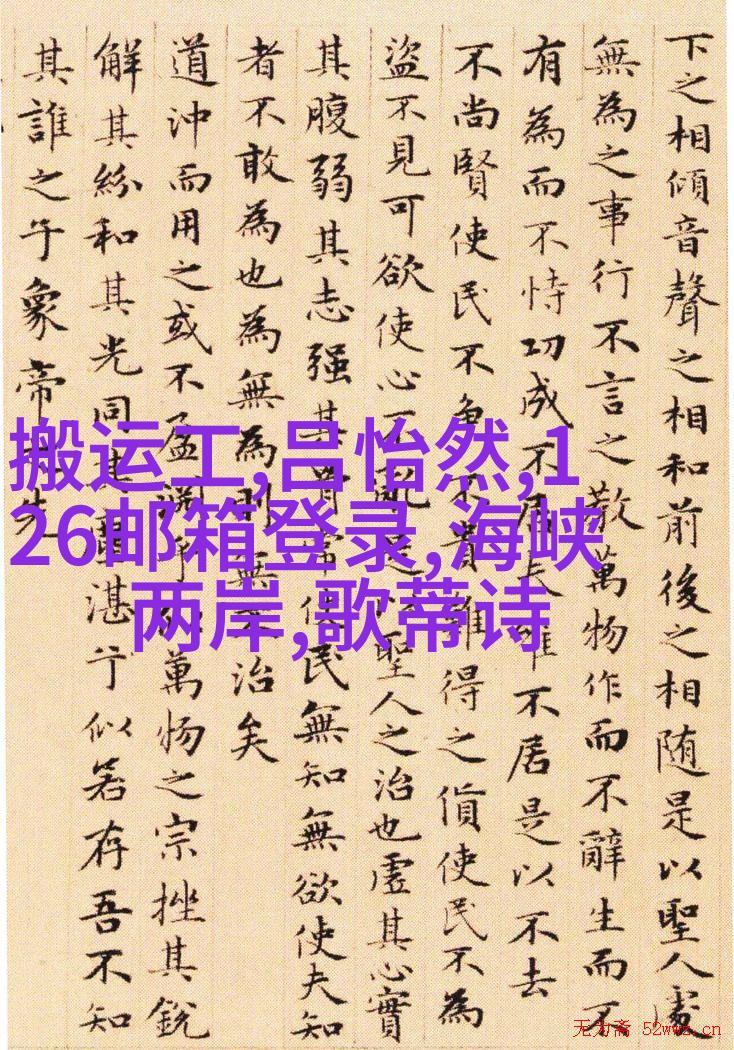 下之相傾音聲之相和前後之相随是以聖人處
無為之事行不言之教萬物作而不辭生而不
有為而不恃功成不居夫唯不居是以不去
不尚賢使民不争不貴難得之貨使民不為
盜不見可欲使心不亂是以聖人之治也虛其心實
其腹弱其志强其骨常使民無知無欲使夫知
者不敢為也為無為則無不治矣
道沖而用之或不盈淵乎似萬物之宗挫其銳
解其紛和其光同其塵湛兮似若存吾不知
其誰之子象帝之先
搬运工,吕怡然,1
26邮箱登录,海峡
两岸,歌蒂诗
无为斋 52wwz.cn